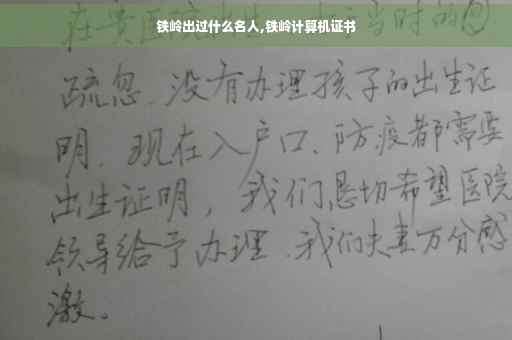 铁岭出过什么名人,铁岭计算机证书
在贵医院 当时的
疏忽、没有办理孩子的出生证
明、现在入户口、防疫都需要
出生证明，我们恳切希望医院
领导给予办理、我们夫妻万分感
激。